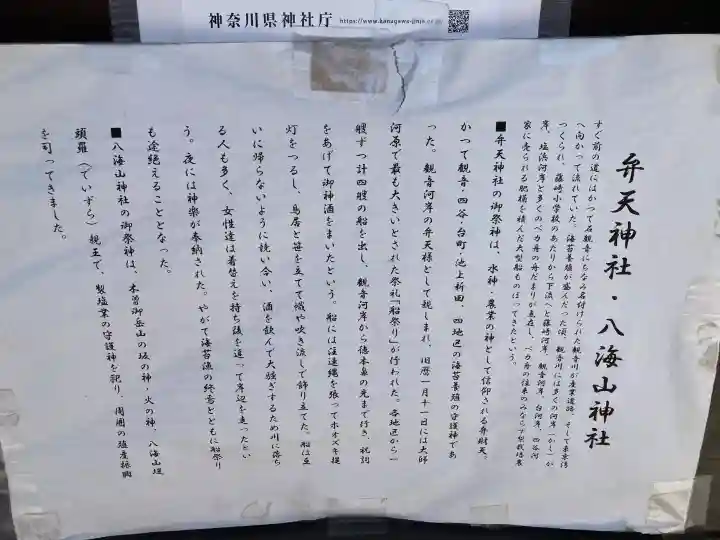 神奈川県神社庁
弁天神社・八海山神社
すぐ前の道にはかつて石観音にちなみ名付けられた観音川が産業道路、そして東京湾
へ向かって流れていた。海苔養殖が盛んだった頃、観音川には多くの河岸（かし）が
つくられ、藤崎小学校のあたりから下流へと藤崎河岸、観音河岸、台河岸、四谷河
岸、塩浜河岸と多くのベカ舟の舟だまりが点在し、ベカ舟の往来のみならず梨栽培農
家に売られる肥桶を積んだ大型船ものぼってきたという。
■弁天神社の御祭神は、水神・農業の神として信仰される弁財天。
かつて観音・四谷・台町・池上新田、四地区の海苔養殖の守護神であ
った。観音河岸の弁天様として親しまれ、旧暦一月十一日には大師
河原で最も大きいとされた祭礼「船祭り」が行われた。各地区から一
艘ずつ計四艘の船を出し、観音河岸から徳本の元まで行き、祝詞
をあげて御神酒をまいたという。船には注連縄を張ってホオズキ提
灯をつるし、鳥居と笹を立てて幟や吹き流しで飾り立てた。船は互
いに帰らないように競い合い、酒を飲んで大騒ぎするため川に落ち
る人も多く、女性達は着替えを持ち後を追って岸辺を走ったとい
う。夜には神楽が奉納された。やがて海苔漁の終焉とともに船祭り
も途絶えることとなった。
■八海山神社の御祭神は、木曽御岳山の坂の神・火の神、八海山提
頭羅（でいずら）親王で、製塩業の守護神を祀り、周囲の殖産振興
を司ってきました。